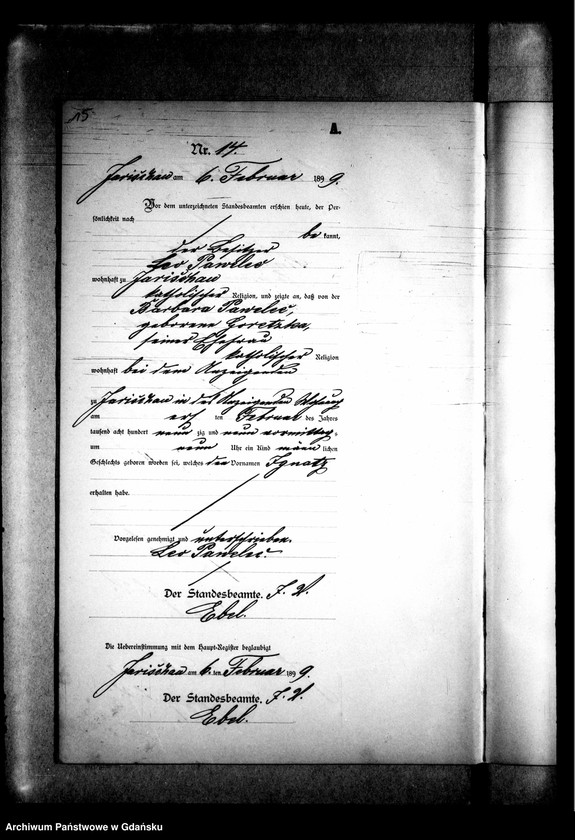 15
A.
Nr. 14.
Jarischau am 6. Februar 1899.
Vor dem unterzeichneten Standesbeamten erschien heute, der Per-
sönlichkeit nach
bekannt,
der Besitzer
Leo Pawelec
wohnhaft zu Jarischau
katholischer Religion, und zeigte an, daß von der
Barbara Pawelec,
geborene Goretzka,
seiner Ehefrau
katholischer Religion
wohnhaft bei dem Anzeigenden
zu Jarischau in des Anzeigenden Wohnung
am ersten Februar des Jahres
tausend acht hundert neunzig und neun vormittags
um neun Uhr ein Kind männlichen
Geschlechts geboren worden sei, welches den Vornamen Ignatz
erhalten habe.
Vorgelesen genehmigt und unterschrieben.
Leo Pawelec.
Der Standesbeamte. J. V.
Ebel.
Die Uebereinstimmung mit dem Haupt-Register beglaubigt
Jarischau am 6. ten Februar 1899.
Der Standesbeamte. J. V.
Ebel.
Archiwum Państwowe w Gdańsku